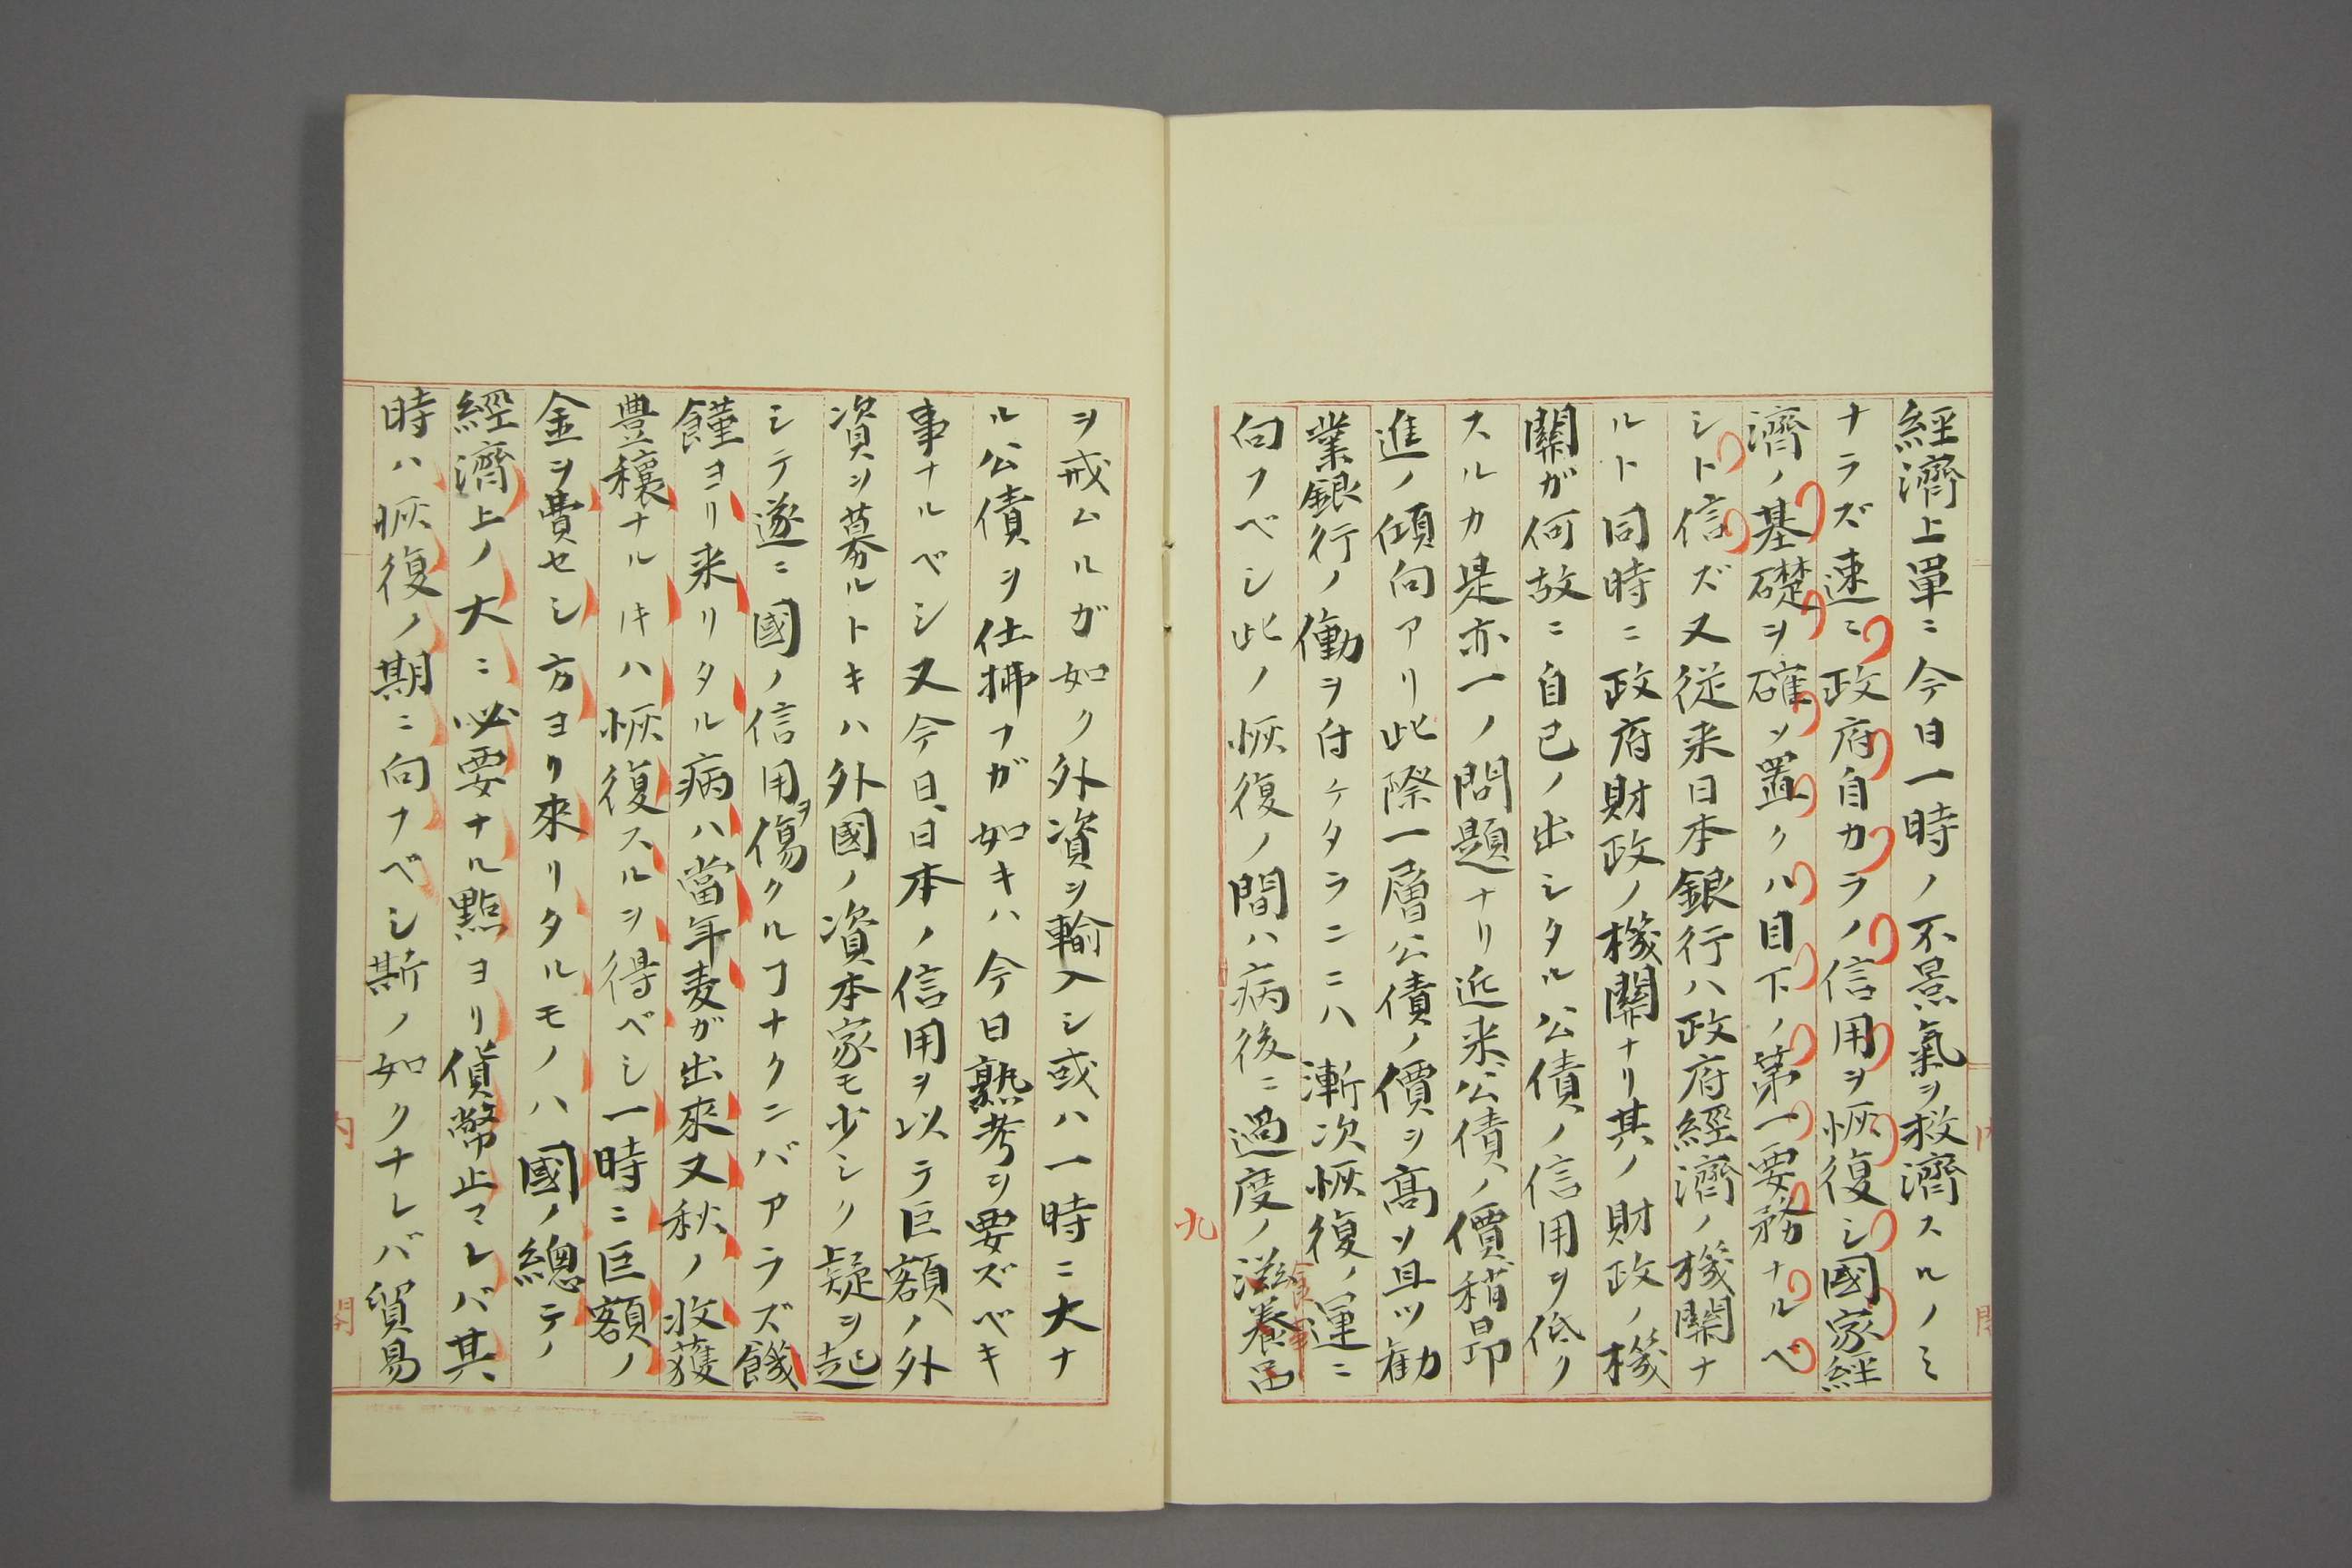 經濟上單ニ今日一時ノ不景氣ヲ救濟スルノミ
ナラズ速ニ政府自カラノ信用ヲ恢復シ國家經
濟ノ基礎ヲ確ツ置クハ目下ノ第一要務ナルベ
シト信ズ又従来日本銀行ハ政府經濟ノ機關ナ
ルト同時ニ政府財政ノ機關ナリ其ノ財政ノ機
關ガ何故ニ自己ノ出シタル公債ノ信用ヲ低ク
スルカ是亦一ノ問題ナリ近来公債ノ價稍昂
進ノ傾向アリ此際一層公債ノ價ヲ髙ツ且ツ勧
業銀行ノ働ヲ付ケタランニハ漸次恢復ノ運ニ
向フベシ此ノ恢復ノ間ハ病後ニ過度ノ滋養品
九
ヲ戒ムルガ如ク外資ヲ輸入シ或ハ一時ニ大ナ
ル公債ヲ仕拂フガ如キハ今日熟考ヲ要ズベキ
事ナルベシ又今日、日本ノ信用ヲ以テ巨額ノ外
資ヲ募ルトキハ外國ノ資本家モ少シク疑ヲ起
シテ遂ニ國ノ信用ヲ傷クルヿナクンバアラズ饑
饉ヨリ来リタル病ハ當年麦ガ出來又秋ノ收獲
豊穰ナルキハ恢復スルヲ得ベシ一時ニ巨額ノ
金ヲ費セシ方ヨリ來リタルモノハ國ノ總テノ
經濟上ノ大ニ必要ナル點ヨリ貨幣止マレバ其
時ハ恢復ノ期ニ向フベシ斯ノ如クナレバ貿易
内
閣